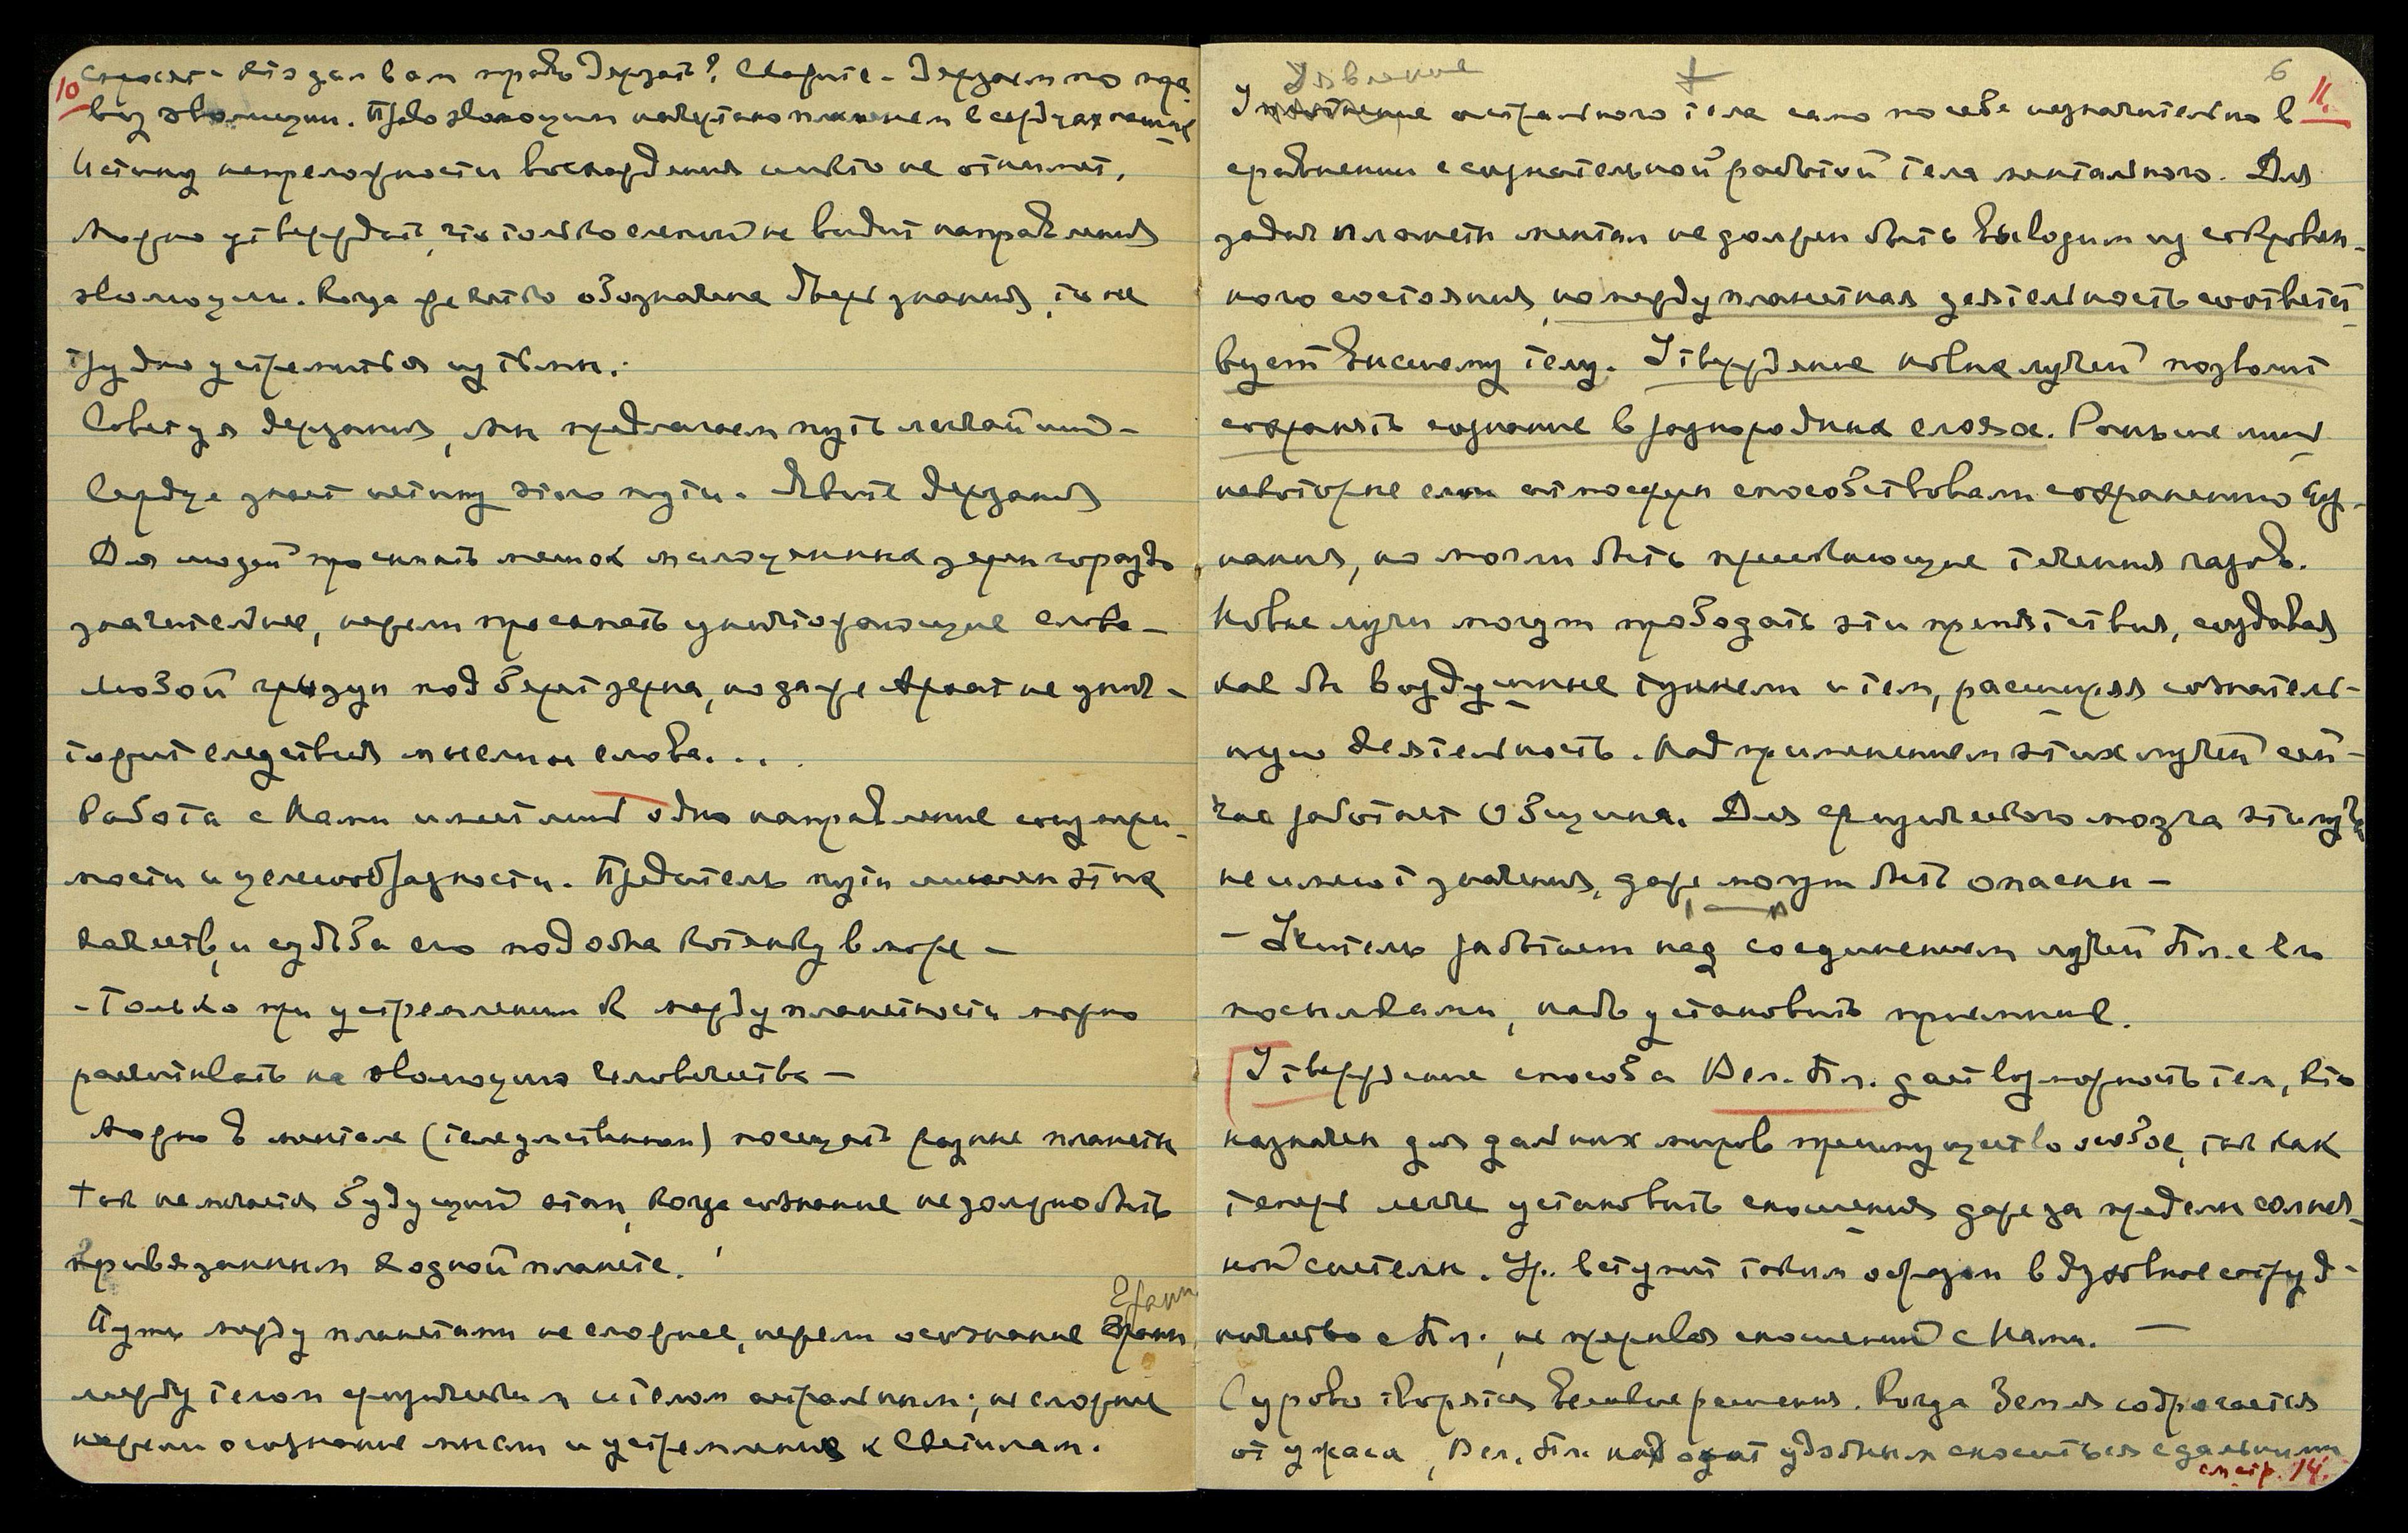 10
Спросят – кто дал вам право дерзать? Скажите – Дерзаем по пра
ву эволюции. Право эволюции начертано пламенем в сердцах наших
Истину непреложности восхождения никто не отнимет.
Можно утверждать, что только слепой не видит направления
эволюции. Когда жестко обозначены двери знания, то не
трудно устремиться из тьмы.
Советуя дерзания, мы предлагаем путь легчайший –
Сердце знает истину этого пути. Явите дерзания
Для людей просыпать мешок малоценных зерен гораздо
значительнее, нежели просыпать уничтожающие слова –
любой грызун подберет зерна, но даже Архат не унич-
тожит следствия мысли и слова...
Работа с Нами имеет лишь одно направление соизмери-
мости и целесообразности. Предатель пути лишен этих
качеств, и судьба его подобна котенку в море –
– Только при устремлении к междупланетности можно
рассчитывать на эволюцию человечества –
Можно в ментале (теле умственном) посещать разные планеты
так намечается будущий этап, когда сознание не должно быть
привязанным к одной планете.
Грани
Путь между планетами не сложнее, нежели осознание Грани
между телом физическим и телом астральным; не сложнее
нежели осознание мысли и устремления к Светилам.
6
11.
Уявление
У астрального тела само по себе незначительно в
сравнении с сознательной работой тела ментального. Для
задач планеты ментал не должен быть выводим из сокровен-
ного состояния, но междупланетная деятельность соответст-
вует высшему телу. Утверждение новых лучей позволит
сохранять сознание в разнородных слоях. Раньше лишь
некоторые слои атмосферы способствовали сохранению соз-
нания, но могли быть пресекающие течения газов.
Новые лучи могут прободать эти препятствия, создавая
как бы воздушные туннели и тем, расширяя сознатель-
ную деятельность. Над применением этих лучей сей-
час работает Община. Для физического мозга эти лучи
не имеют значения, даже могут быть опасны –
– Учитель работает над соединением лучей Пл. с Ея
посылками, надо установить приемник.
Утверждение способа Вел. Пл. дает возможность тем, кто
назначен для дальних миров преимущество особое, так как
теперь легче установить сношения даже за пределы солнеч-
ной системы. Ур. вступит таким образом в духовное сотруд-
ничество с Пл., не прерывая сношений с Нами. –
Сурово творятся великие решения. Когда Земля содрогается
от ужаса, Вел. Пл. находит удобным сноситься с дальними
см. стр. 14.